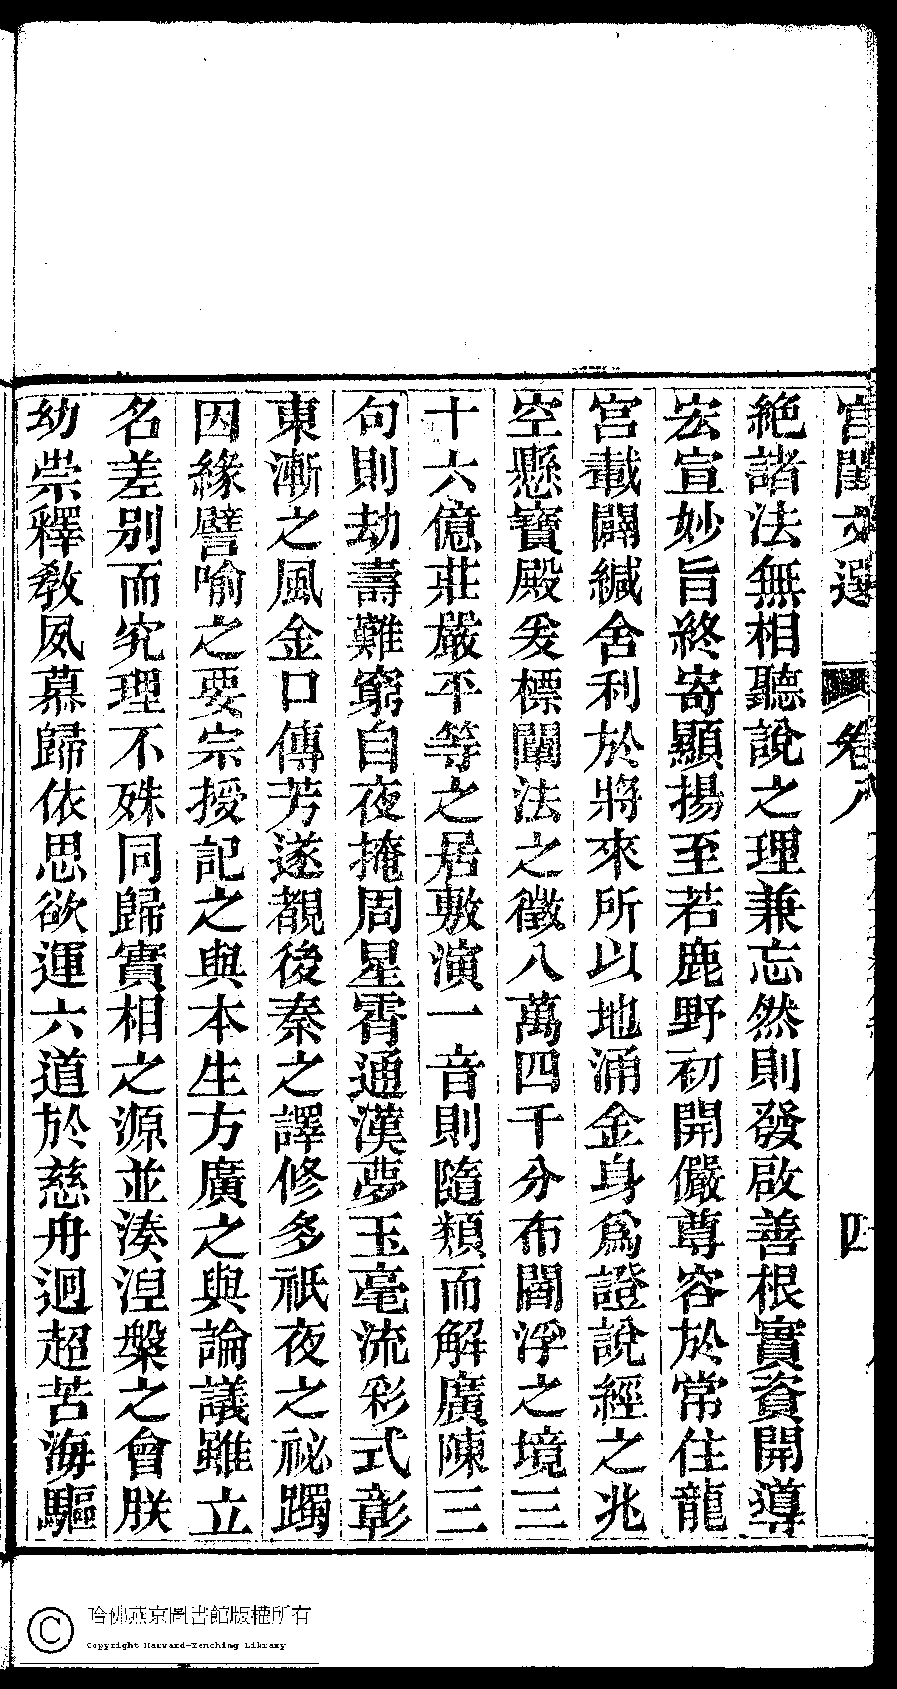 宮閨文選 卷八 四
絶諸法無相聽說之理兼忘然則發啟善根實資開導
宏宣妙旨終寄顯揚至若鹿野初開儼尊容於常住龍
宮載闢緘舍利於將來所以地涌金身爲證說經之兆
空懸寶殿爰標闡法之徵八萬四千分布閻浮之境三
十六億莊嚴平等之居敷演一音則隨類而解廣陳三
句則劫壽難窮自夜掩周星霄通漢夢玉毫流彩式彰
東漸之風金口傳芳遂覩後秦之譯修多祇夜之祕躅
因緣譬喻之要宗授記之與本生方廣之與論議雖立
名差別而究理不殊同歸實相之源並湊湼槃之會朕
幼崇釋教夙慕歸依思欲運六道於慈舟迥超苦海驅
哈佛燕京圖書館版權所有
Copyright Harvard-Yenching Library